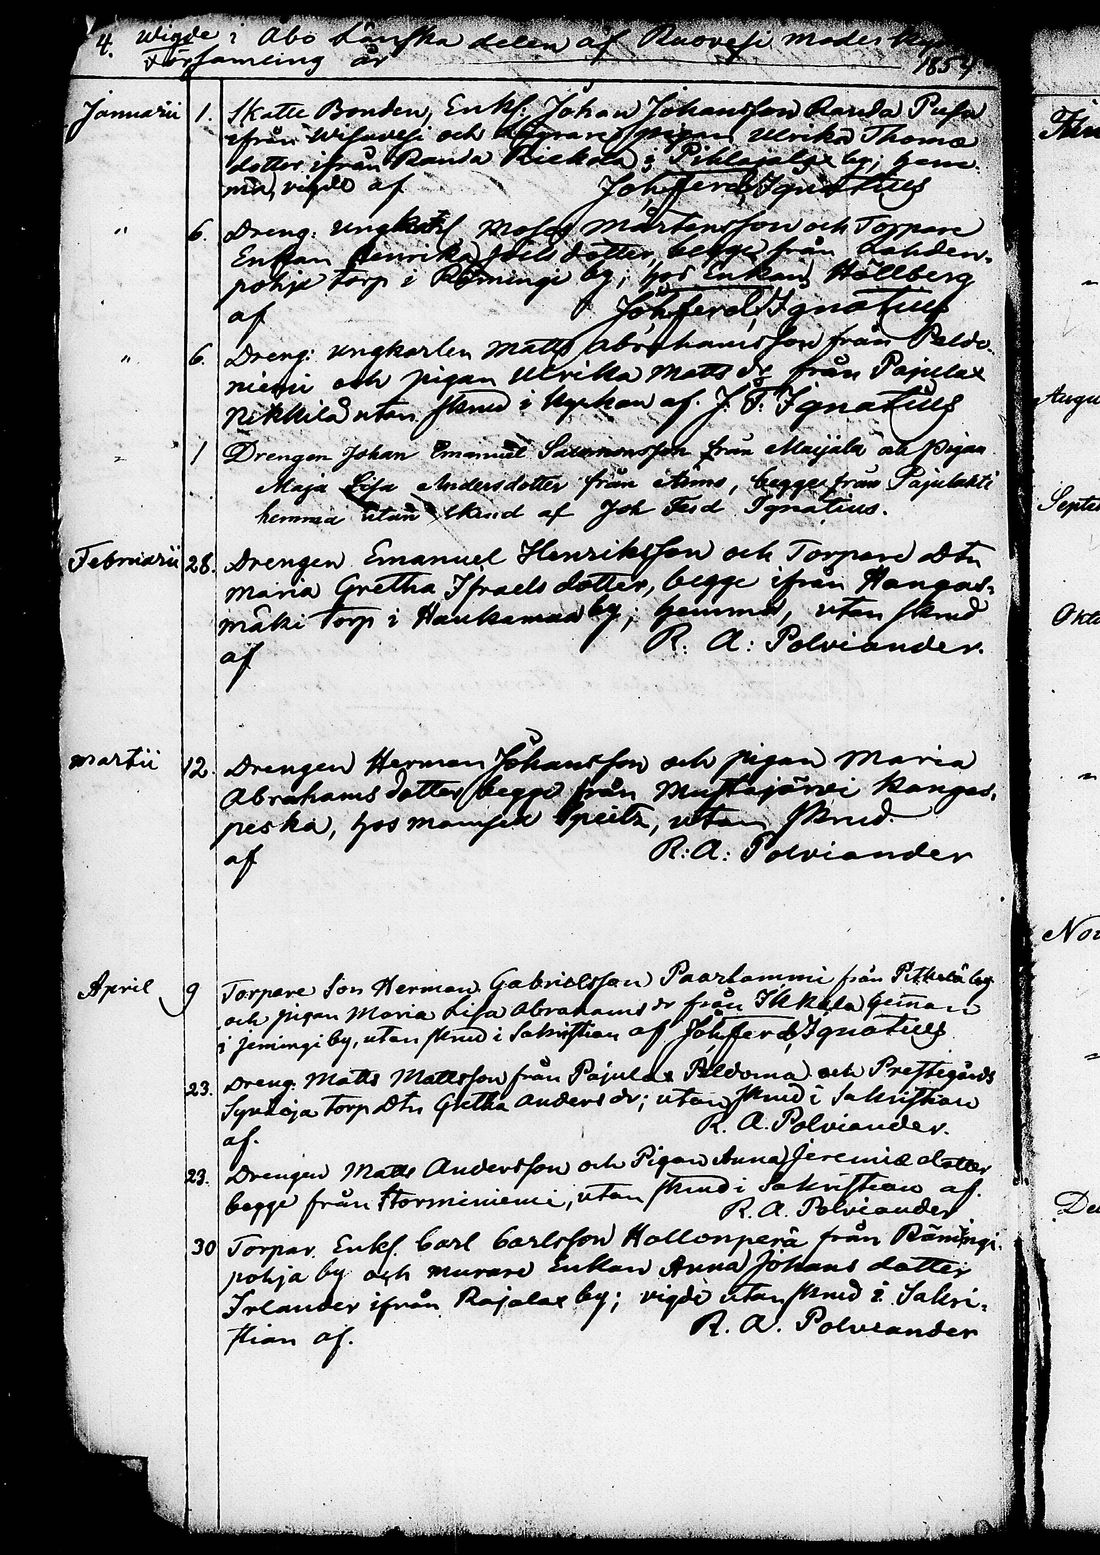 4. Wigde i Åbo Länska delen af Ruovesi moder
Församling år 1854
Januarii 1. Skatte Bonden, Enkl. Johan Johansson Randa Pusa
ifrån Wisuvesi och pigan Ulrika Thomæ
dotter ifrån Randa i Pihlajalax by; hem-
ma, vigde af Joh: ferd, Ignatius
" 6. Dreng: ungkarl Moses Mårtensson och Torpare
Enkan Henrika Joels dotter, begge från Lahden-
pohja torp i by; hos Enkan Hällberg
af Joh: ferd, Ignatius
" 6. Dreng: ungkarlen Matts Abrahamsson från Peldo-
niemi och pigan Ulrika Matts dr från Pajulax
Nikkilä utan skrud i kyrkan af J. F. Ignatius
" 1 Drengen Johan Emanuel Salomonsson från Maijala och Pigan
Maja Lisa Andersdotter från begge från Pajulahti
hemma utan skrud af Joh Ferd Ignatius.
Februarii 28. Drengen Emanuel Henriksson och Torpare Dtr
Maria Gretha Israels dotter, begge ifrån Hangas-
mäki torp i Haukamaa by; hemma, utan skrud
af R: A: Polviander.
Martii 12. Drengen Herman Johansson och pigan Maria
Abrahams dotter begge från Mustajärvi Kangas-
peska, hos mamsell utan skrud.
af R: A: Polviander
April 9 Torpare Son Herman Gabrielsson Paarlammi från by
och pigan Maria Lisa Abrahams dr från
i Jeningi by, utan skrud i Sakristian af Joh: ferd, Ignatius
23. Dreng. Matts Mattsson från Pajulax Peldoma och Prestegårds
Torp Dtr Gretha Anders dr; utan skrud i Sakristian
af. R. A. Polviander.
23. Drengen Matts Andersson och Pigan Anna Jeremiæ dotter
begge från Storminiemi, utan skrud i Sakristian af.
R. A. Polviander
30 Torpar. Enkl. Carl Carlsson Hallonperä från
pohja by och murare Enkan Anna Johans dotter
Irlander ifrån Rajalax by; vigde utan skrud i Sakri-
stian af. R. A. Polviander
Augu
Septe
Okto
Nov
De